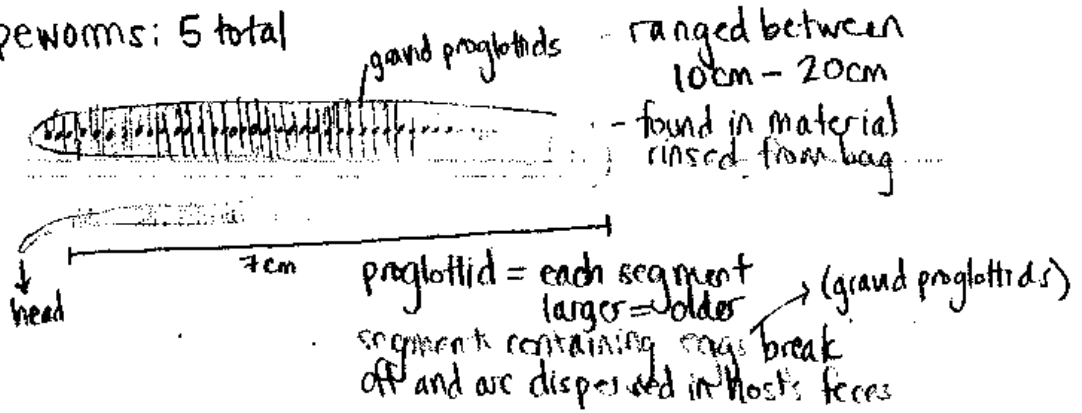 peworms: 5 total
gravid proglottids
- ranged between
10cm - 20cm
- found in material
rinsed from bag
7cm
head
proglottid = each segment
larger = older
(gravid proglottids)
segments containing eggs break
off and are dispersed in hosts feces